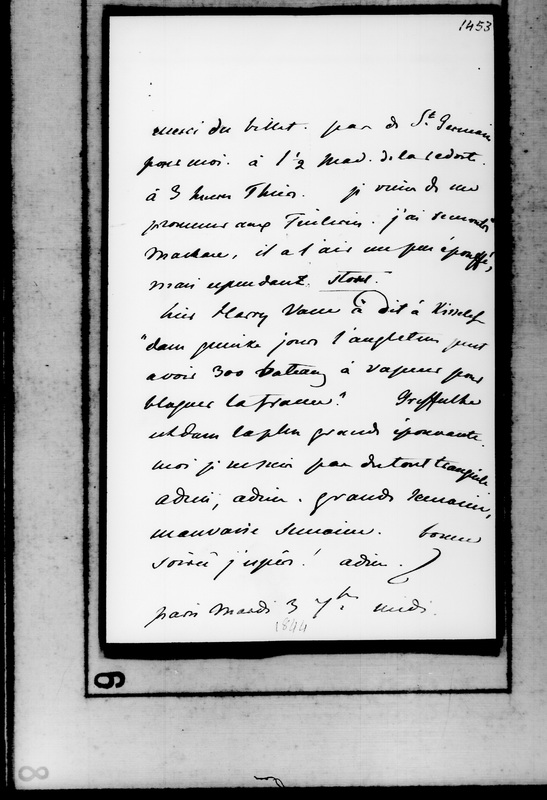 1453
merci du billet. pas de St Germain
pour moi. à 1 1/2 Mad. de la redorte.
à 3 heures Thiers. je viens de me
promener aux Tuileries. j'ai rencontré
Mackau, il a l'air un peu épouffé,
mais cependant stout.
hier Harry Vane a dit à Kisselef
"dans quinze jours l'angleterre peut
avoir 300 bateaux à vapeur pour
bloquer la france." Greffulhe
est dans la plus grande épouvante.
moi je ne suis pas du tout tranquille
adieu, adieu. grande semaine,
mauvaise semaine. bonne
soirée j'espère! adieu.
paris Mardi 3 7bre midi.
1844
6
8